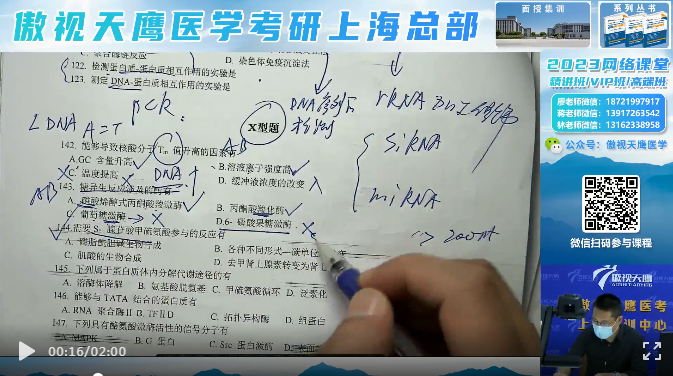 傲视天鹰医学考研上海总部
面授集训
系列丛书
2023网络课堂
精讲班/VIP班/高端班
廖老师微信：18721997917
蒋老师微信：13917263542
林老师微信：13162338958
公众号：傲视天鹰医学
微信扫码参与课程
傲视天鹰
傲视天鹰医考
上 训中心
D. 染色体免疫沉淀法
122. 检测蛋白质-蛋白质相互作用的实验是
123. 测定 DNA-蛋白质相互作用的实验是
PCR
A=T
rRNA
SiRNA
miRNA
X型题
142. 能够导致核酸分子 Tm 值升高的因素有 AB
A.GC 含量升高
B.溶液离子强度高
C. 温度提高
DNA
D. 缓冲液浓度的改变
143. 糖异生反应涉及的酶有
AB
A. 磷酸烯醇式丙酮酸羧激酶
B. 丙酮酸羧化酶
C. 葡萄糖激酶
D.6- 磷酸果糖激酶
144.需要 S- 腺苷甲硫氨酸参与的反应有
A. 磷脂酰胆碱生物合成
B. 各种不同形式一碳单位
C. 肌酸的生物合成
D. 去甲肾上腺素转变为肾
145. 下列属于蛋白质体内分解代谢途径的有
A. 溶酶体降解
B. 氨基酸脱氨基
C. 甲硫氨酸循环
D. 泛素化
146. 能够与 TATA 结合的蛋白质有
A. RNA 聚合酶Ⅱ
B. TFⅡD
C. 拓扑异构酶
D. 组蛋白
147. 下列具有酪氨酸激酶活性的信号分子有
A. MAPK
B. G 蛋白
C. Src 蛋白激酶
00:16/02:00